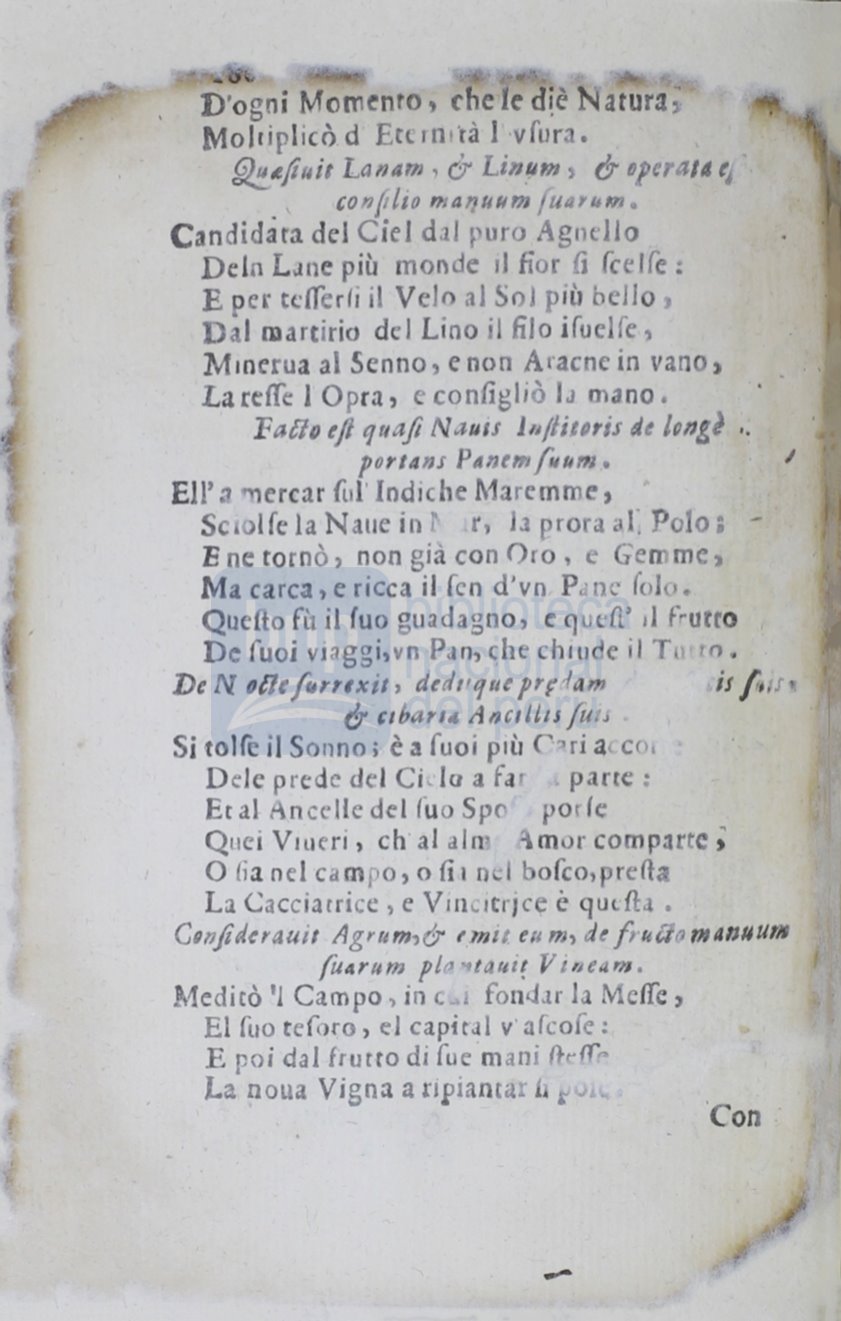 D'ogni Momento, che le diè Natura,
Moltiplicò d Eternità l vſura.
Quæſiuit Lanam, & Linum, & operata eſ
conſilio manuum ſuarum.
Candidata del Ciel dal puro Agnello
Deln Lane più monde il fior ſi ſcelſe:
E per teſſerſi il Velo al Sol più bello,
Dal martirio del Lino il filo iſuelſe,
Minerua al Senno, e non Aracne in vano,
La teſſe l Opra, e conſigliò la mano.
Facto eſt quaſi Nauis Inſtitoris de longè
portans Panem ſuum.
Ell' a mercar ſul' Indiche Maremme,
Sciolſe la Naue in r, la prora al Polo;
E ne tornò, non già con Oro, e Gemme,
Ma carca, e ricca il ſen d'vn Pane ſolo.
Queſto fù il ſuo guadagno, e queſt' il frutto
De ſuoi viaggi, vn Pan, che chiude il Tutto.
De Nocte ſurrexit, deditque prędam is ſuis,
& cibaria Ancillis ſuis
Si tolſe il Sonno; è a ſuoi più Cari
Dele prede del Cielo a far parte:
Et al Ancelle del ſuo porſe
Quei Viueri, ch al Amor comparte,
O ſia nel campo, o ſia nel boſco, preſta
La Cacciatrice, e Vincitrice è queſta.
Conſiderauit Agrum, & emit eum, de fructo manuum
ſuarum plantauit Vineam.
Meditò 'l Campo, in cui fondar la Meſſe,
El ſuo teſoro, el capital v' aſcoſe:
E poi dal frutto di ſue mani ſteſſe
La noua Vigna a ripiantar ſi
Con
biblioteca
nacional
del perú